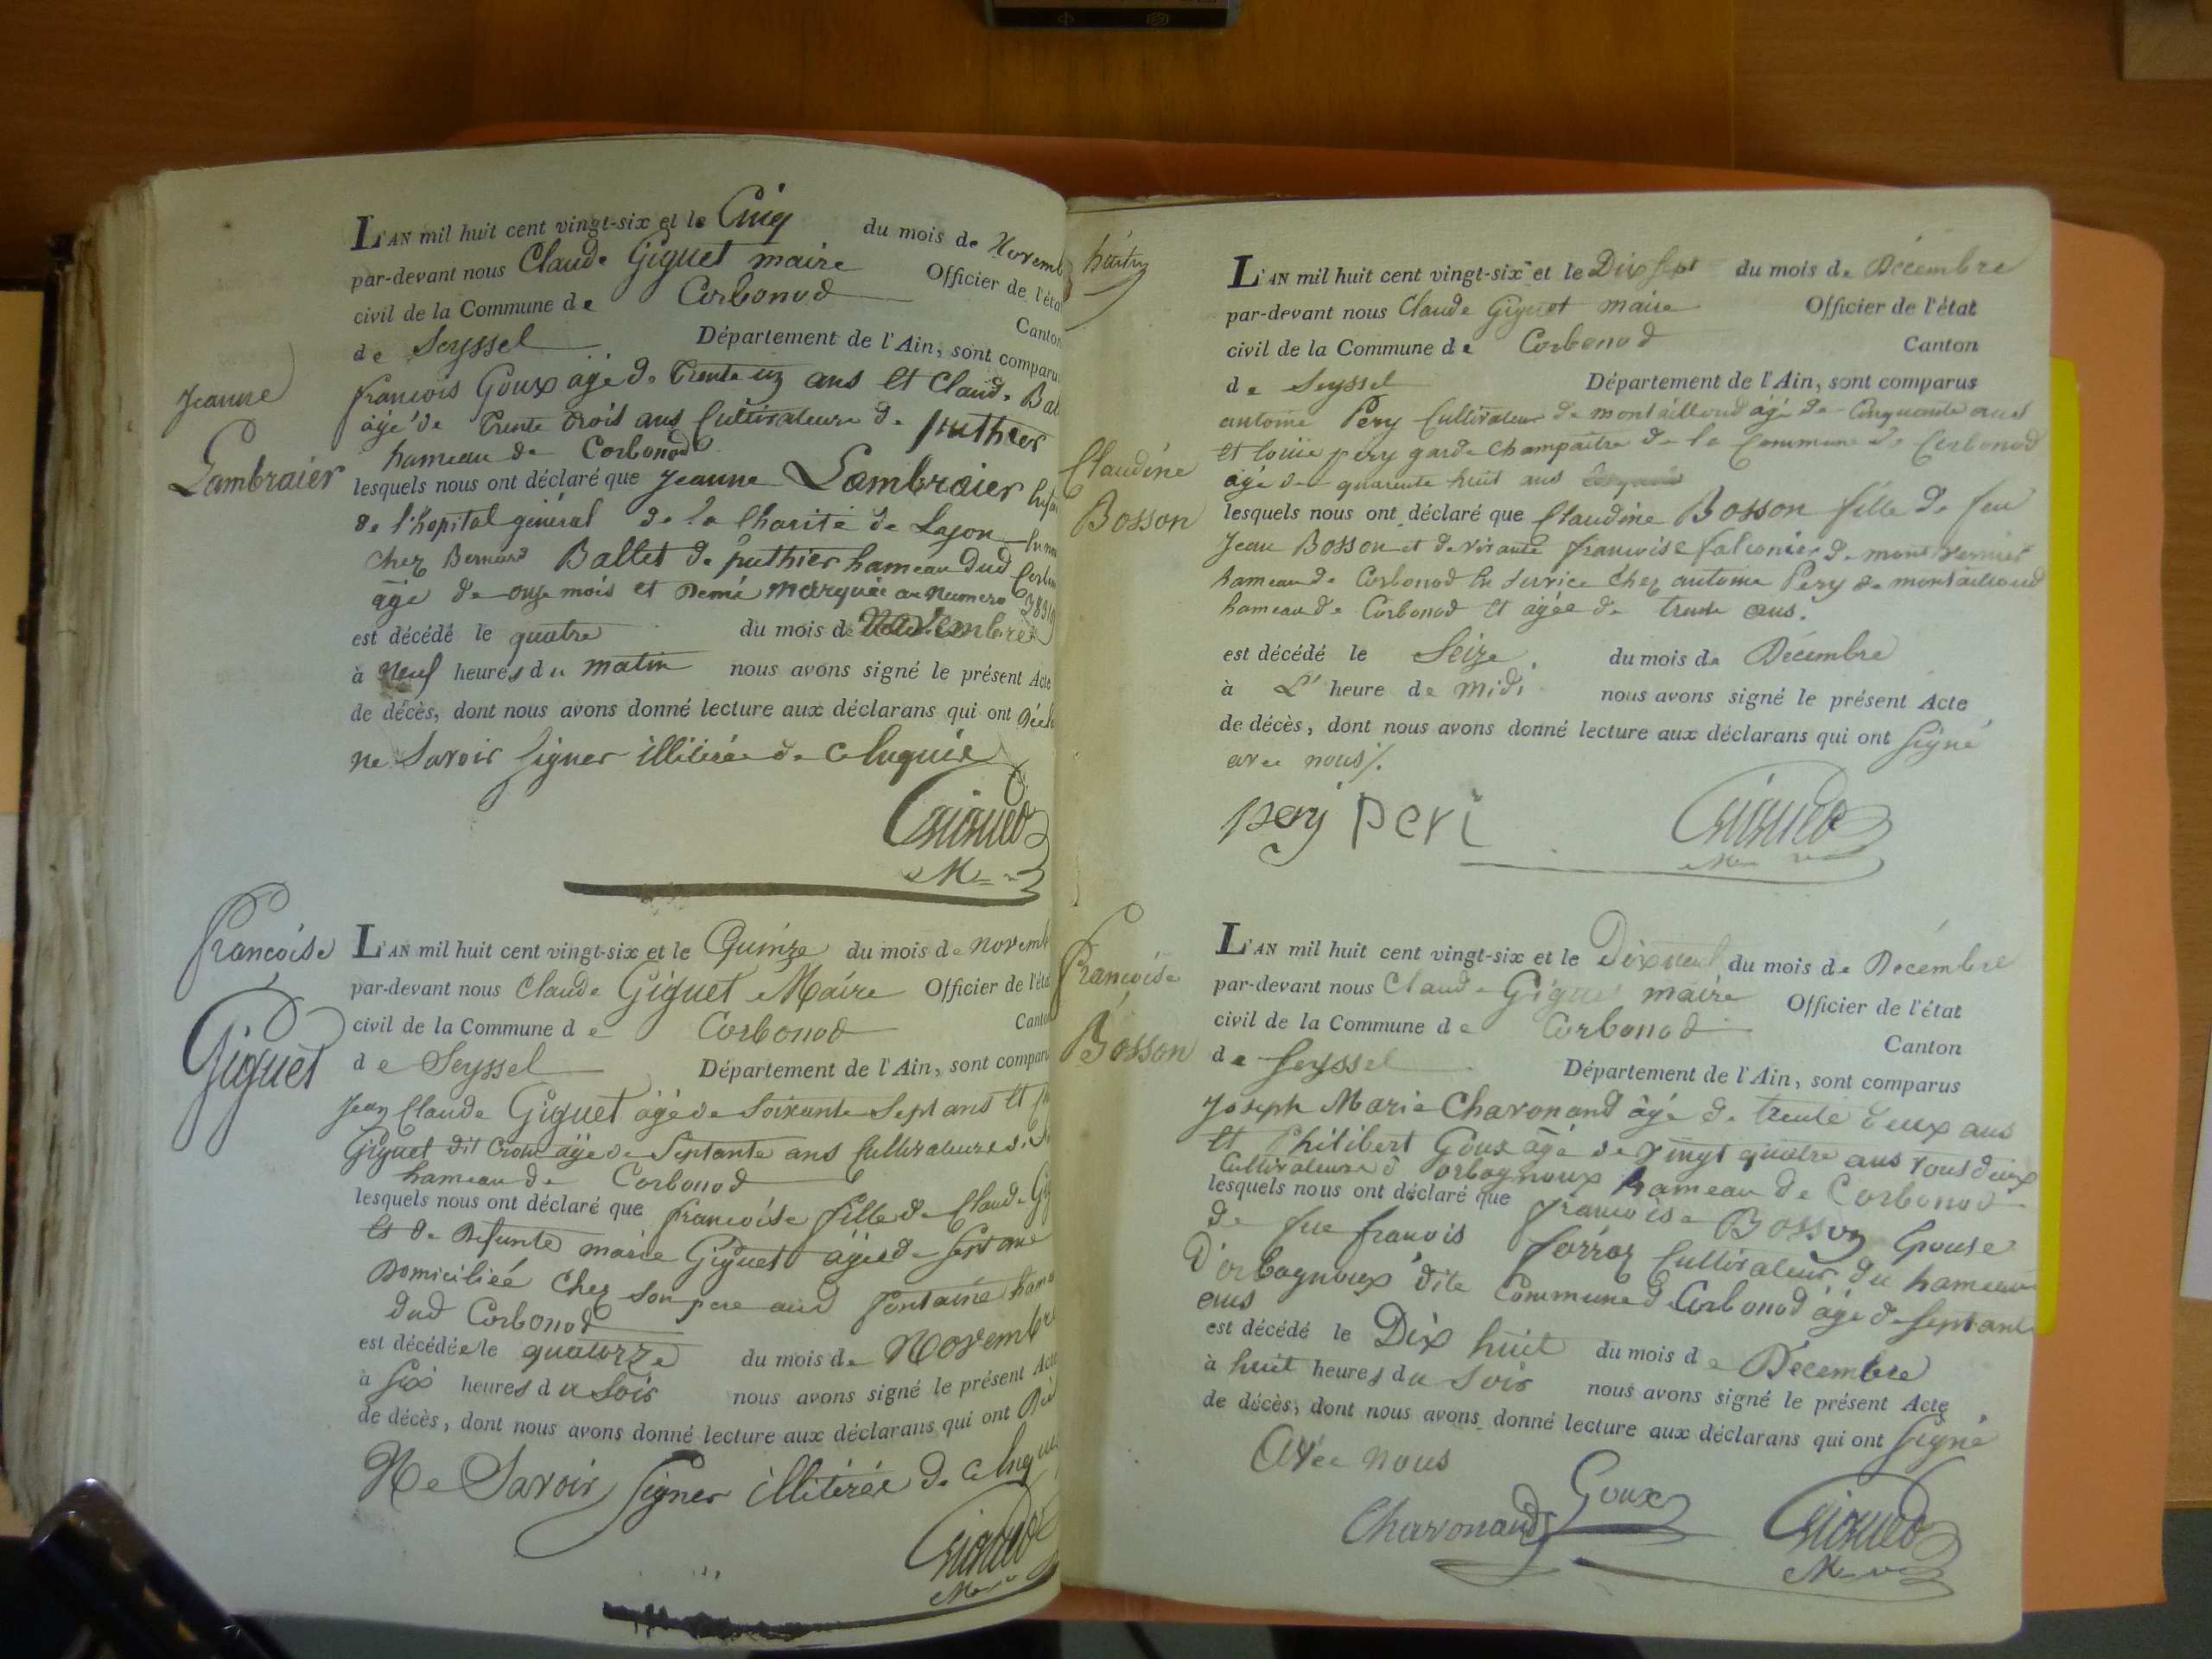 L'AN mil huit cent vingt-six et le Cinq du mois de Novemb
par-devant nous Claude Giguet maire Officier de l'éta
civil de la Commune de Corbonod Canton
de Seyssel Département de l'Ain, sont comparu
françois Goux âgé de trente un ans et Claude Bal
âgé de trente trois ans Cultivateurs de puthier
hameau de Corbonod
Jeanne
Lambraier
lesquels nous ont déclaré que Jeanne Lambraier
de l'hopital général de la Charité de Layon
chez Bernard Ballet de puthier hameau dud
âgé de onze mois et Demi marquée au Numero
est décédé le quatre du mois de Novembre
à Neuf heures du matin nous avons signé le présent Acte
de décès, dont nous avons donné lecture aux déclarans qui ont
ne Savoir signer illitérée de ce Enquis
Giguet
M
Françoise
Giguet
L'AN mil huit cent vingt-six et le Quinze du mois de novemb
par-devant nous Claude Giguet Maire Officier de l'éta
civil de la Commune de Corbonod Canton
de Seyssel Département de l'Ain, sont comparu
Jean Claude Giguet âgé de Soixante Sept ans et
Giguet dit Croue âgé de Septante ans Cultivateurs
hameau de Corbonod
lesquels nous ont déclaré que françoise fille de Claude Gig
et de Defunte marie Giguet âgée de Sept ans
Domiciliée chez son pere aud fontaine ham
dud Corbonod
est décédée le quatorze du mois de Novembre
à six heures du Soir nous avons signé le présent Acte
de décès, dont nous avons donné lecture aux déclarans qui ont
Ne Savoir signer illitérée de ce
Giguet
L'AN mil huit cent vingt-six et le Dix sept du mois de Décembre
par-devant nous Claude Giguet maire Officier de l'état
civil de la Commune de Corbonod Canton
de Seyssel Département de l'Ain, sont comparus
antoine Pery Cultivateur de montailloud âgé de Cinquante ans
et louie pery garde champaitre de la Commune de Corbonod
âgé de quarente huit ans
Claudine
Bosson
lesquels nous ont déclaré que Claudine Bosson fille de feu
Jean Bosson et de vivante francoise falconier de mont vernier
hameau de Corbonod En Service chez antoine Pery de montailloud
hameau de Corbonod et âgée de trente ans.
est décédé le Seize du mois de Décembre
à L' heure de midi nous avons signé le présent Acte
de décès, dont nous avons donné lecture aux déclarans qui ont signé
avec nous
pery peri Giguet
Françoise
Bosson
L'AN mil huit cent vingt-six et le Dixneuf du mois de Décembre
par-devant nous Claude Giguet maire Officier de l'état
civil de la Commune de Corbonod Canton
de Seyssel Département de l'Ain, sont comparus
Joseph Marie Charonand âgé de trente deux ans
et Philibert Goux âgé de vingt quatre ans tous deux
Cultivateurs d'orbagnoux hameau de Corbonod
lesquels nous ont déclaré que Françoise Bosson Epouse
de feu françois forroz Cultivateur du hameau
D'orbagnoux dite Commune de Corbonod âgé de septante
ans
est décédé le Dix huit du mois de Décembre
à huit heures du Soir nous avons signé le présent Acte
de décès, dont nous avons donné lecture aux déclarans qui ont signé
Avec nous
Charonand Goux Giguet